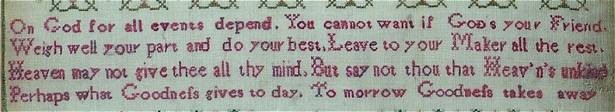 On God for all events depend. You cannot want if God's your Friend.
Weigh well your part and do your best, Leave to your Maker all the rest.
Heaven may not give thee all thy mind, But say not thou that Heav'n's unkind
Perhaps what Goodneſs gives to day, To morrow Goodneſs takes away